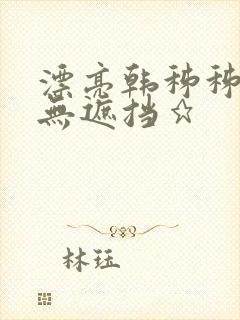 漂亮韩秭秭
無遮挡☆
林珏